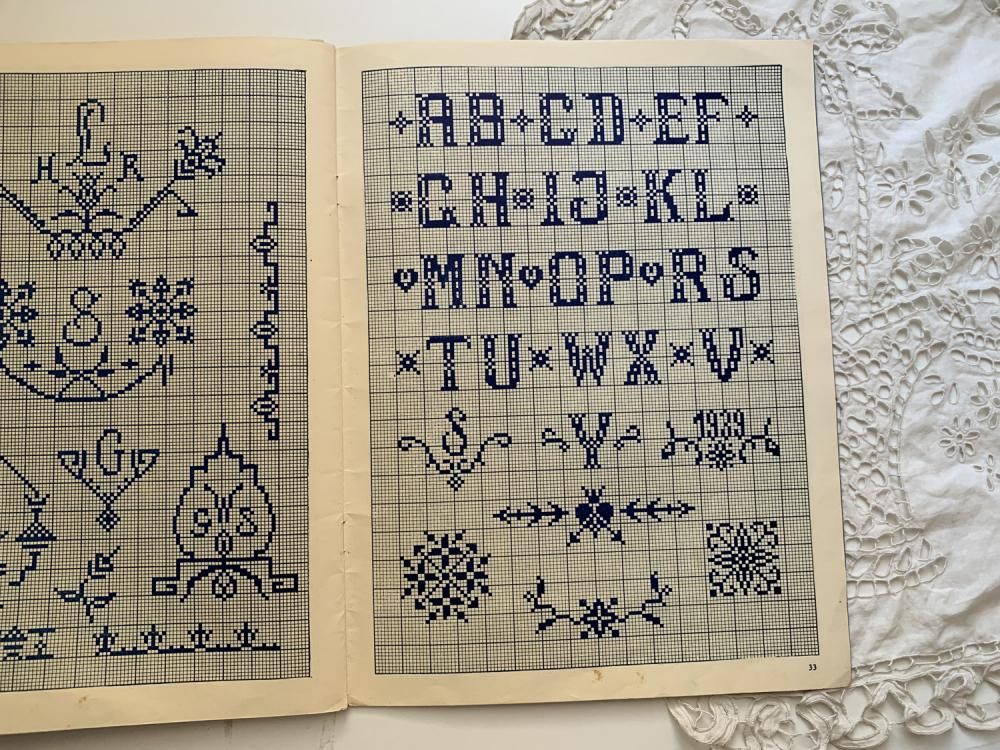 L
H R
S
G
G S
AB CD EF
GH IJ KL
MN OP RS
TU WX V
S Y 1939
33